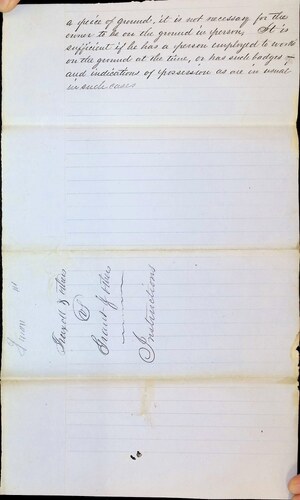 a peice of ground, it is not necessary for the
owner to be on the ground in person, It is
sufficient if he has a person employed to work
on the ground at the time, or has such badges
and indications of possession as are in usual
in such cases
& others
vs
Grant & others
Instructions